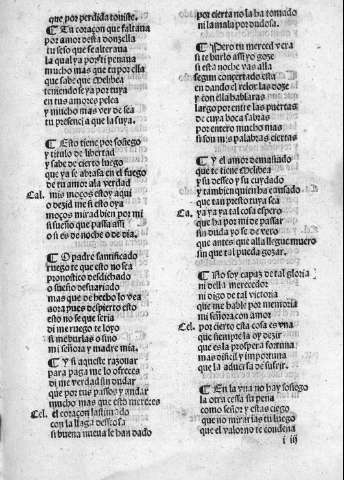 que por perdida touiste.
¶ Tu coraçon que faltaua
por amor desta donzella
tu seso que se alteraua
la qual ya por ti penaua
mucho mas que tu por ella
que sabe que Melibea
teniendose ya por tuya
en tus amores pelea
y mucho mas ver dessea
tu presencia que la suya.
¶ Esto tiene por sossiego
y titulo de libertad
y sabe de cierto luego
que ya se abrasa en el fuego
de tu amor ala verdad
Cal. mis moços estoy aqui
o dezid me si esto oya
moços mirad bien por mi
si sueño que passa assi
o si es de noche o de dia.
¶ O padre santificado
ruego te que esto no sea
pronostico desdichado
o sueño desuariado
mas que de hecho lo vea
agora pues despierto esto
esto no se que seria
di me ruego te loyo
si me burlas o si no
mi señora y madre mia.
¶ Y si aqueste razonar
para paga me lo ofreces
di me verdad sin dudar
que por tus passos y andar
mucho mas que esto mereces
Cel. el coraçon lastimado
con la llaga desseosa
si buena nueua le han dado
por cierta no la ha tomado
ni la mala por dudosa.
¶ Pero tu merced vera
si te burlo assi yo goze
si esta noche vas alla
segun concertado esta
en dando el relox las doze
y con ella hablaras
largo por entre las puertas
de cuya boca sabras
por entero mucho mas
si son mis palabras ciertas
¶ Y el amor demasiado
que te tiene Melibea
y su desseo y su cuydado
y tambien quien ha causado
que tan presto tuya sea
Ca. ya ya ya tal cosa espero
que ha por mi de passar
sin duda yo se de vero
que antes que alla llegue muero
sin que tal pueda gozar.
¶ No soy capaz de tal gloria
ni della merecedor
ni digo de tal victoria
que me hable por memoria
mi señora con amor
Cel. por cierto esta cosa es vna
que siempre la oy dezir
que es la prospera fortuna
mas dificil y importuna
que la aduersa de sufrir.
¶ En la vna no hay sossiego
la otra cessa su pena
como señor y estas ciego
que no miraras tu luego
que el valor no te condena
i iij